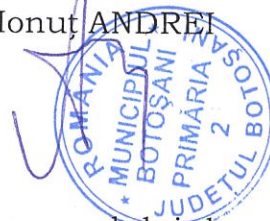 Ionuț ANDREI
ROMÂNIA
MUNICIPIUL
BOTOȘANI
PRIMĂRIA
2
* JUDEȚUL BOTOȘANI